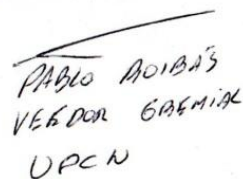 PABLO ROIBÁS
VEEDOR GREMIAL
UPCN